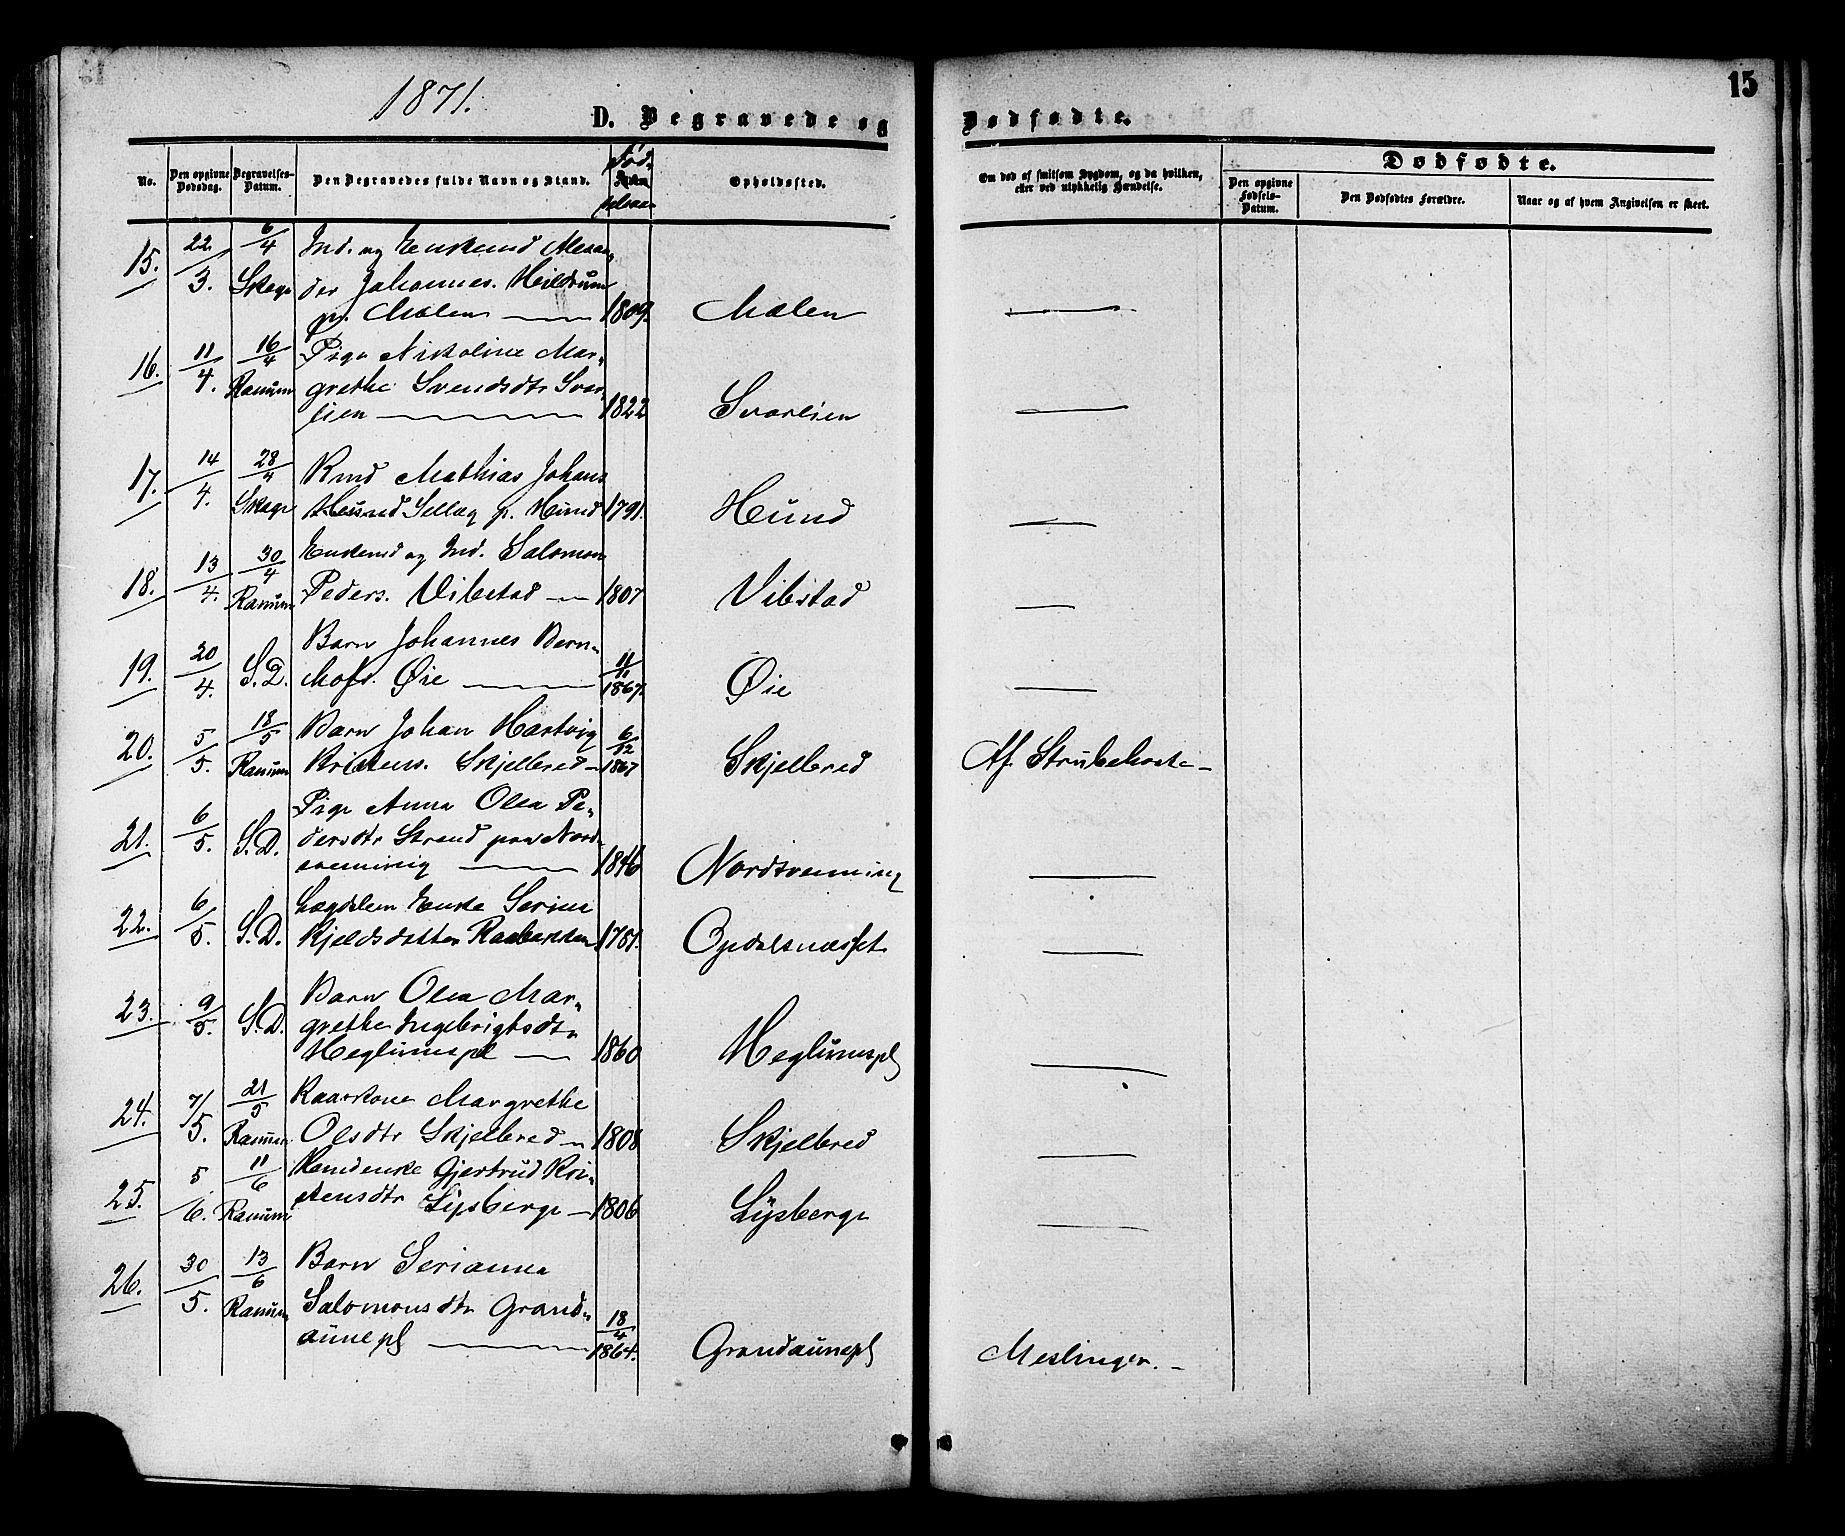 1871.
15
D. Begravede og Dødfødte.
No.
Den opgivne Dødsdag.
Begravelses-Datum.
Den Begravedes fulde Navn og Stand.
Fød-
selsaar
Opholdssted.
Om død af smitsom Sygdom, og da hvilken, eller ved ulykkelig Hændelse.
Dødfødte.
Den opgivne Fødsels-Datum.
Den Dødfødtes Forældre.
Naar og af hvem Angivelsen er skeet.
15. 22/3. 6/4 Ind. og Enkemd Alexan-
Skage der Johannes. Heildrum
pr. Mælen 1809. Mælen
16. 11/4. 16/4 Pige Nikoline Mar-
Ranum grethe Svendsdtr Svar-
lien 1822 Svarlien
17. 14/4. 28/4 Knud Mathias Johans
Skage Hund Sellæg p. Hund 1791. Hund
18. 13/4. 30/4 Enkemd og Ind. Salomon
Ranum Peders. Vibstad 1807 Vibstad
19. 20/4. S.D. Barn Johannes Bern-
hofs. Øie 11/11 1867. Øie
20. 5/5. 18/5 Barn Johan Hartvig
Ranum Kristens. Skjelbred 6/12 1867 Skjelbred Af Strubehoste
21. 6/5. S.D. Pige Anna Olea Pe-
dersdtr Strand paa Nord-
svenning 1846 Nordsvenning
22. 6/5. S.D. Lægdslem Enke Serine
Kjeldsdatter Raabakken 1781. Opdalsnæsset
23. 9/5. S.D. Barn Olea Mar-
grethe Ingebrigtsdtr
Heglumspl 1860 Heglumspl
24. 7/5. 21/5 Kaarkone Margrethe
Ranum Olsdtr Skjelbred 1808 Skjelbred
25. 5/6. 11/6 Kaarenke Gjertrud Kri-
Ranum stensdtr Lysberge 1806 Lysberge
26. 30/5. 13/6 Barn Serianna
Ranum Salomonsdtr Grand-
aunepl 18/4 1864. Grandaunepl Meslinger.